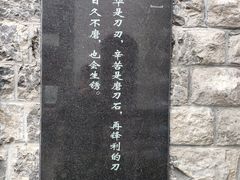 华是刀刃，辛苦是磨刀石，再锋利的刀
日久不磨，也会生锈。